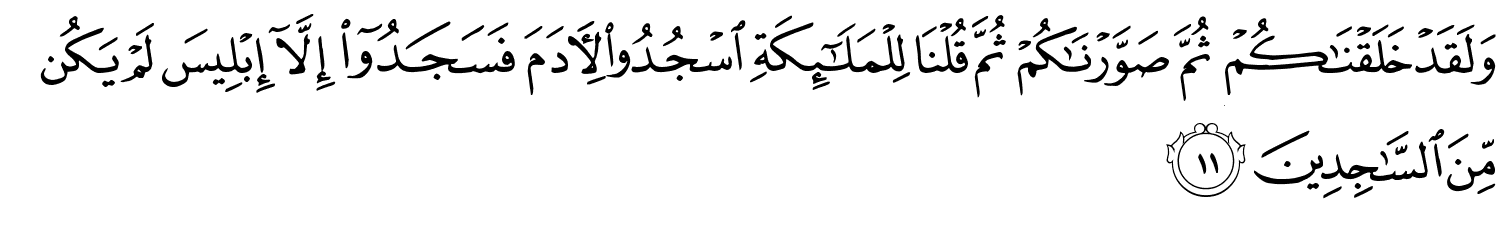 وَلَقَدۡ خَلَقۡنَٰكُمۡ ثُمَّ صَوَّرۡنَٰكُمۡ ثُمَّ قُلۡنَا لِلۡمَلَٰٓئِكَةِ ٱسۡجُدُواْ لِأٓدَمَ فَسَجَدُوٓاْ إِلَّآ إِبۡلِيسَ لَمۡ يَكُن
مِّنَ ٱلسَّٰجِدِينَ ١١